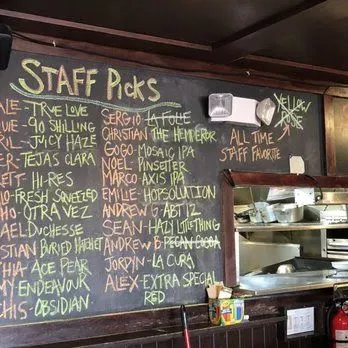 STAFF PICKS
ALE - TRUE LOVE
UE - 90 SHILLING
RIL - JUICY HAZE
ER - TEJAS CLARA
ETT - HI-RES
LO - FRESH SQUEEZED
HO - OTRA VEZ
AEL - DUCHESSE
STIAN - BURIED HATCHET
THIA - ACE PEAR
MY - ENDEAVOUR
CHIS - OBSIDIAN
SERGIO - LA FOLIE
CHRISTIAN - THE HEMPEROR
GOGO - MOSAIC IPA
NOEL - PINSETTER
MARCO - AXIS IPA
EMILIE - HOPSOLUTION
ANDREW G - ABT 12
SEAN - HAZY LITTLE THING
ANDREW B - PECAN
JORDYN - LA CURA
ALEX - EXTRA SPECIAL
RED
YELLOW
ROSE
ALL TIME
STAFF FAVORITE